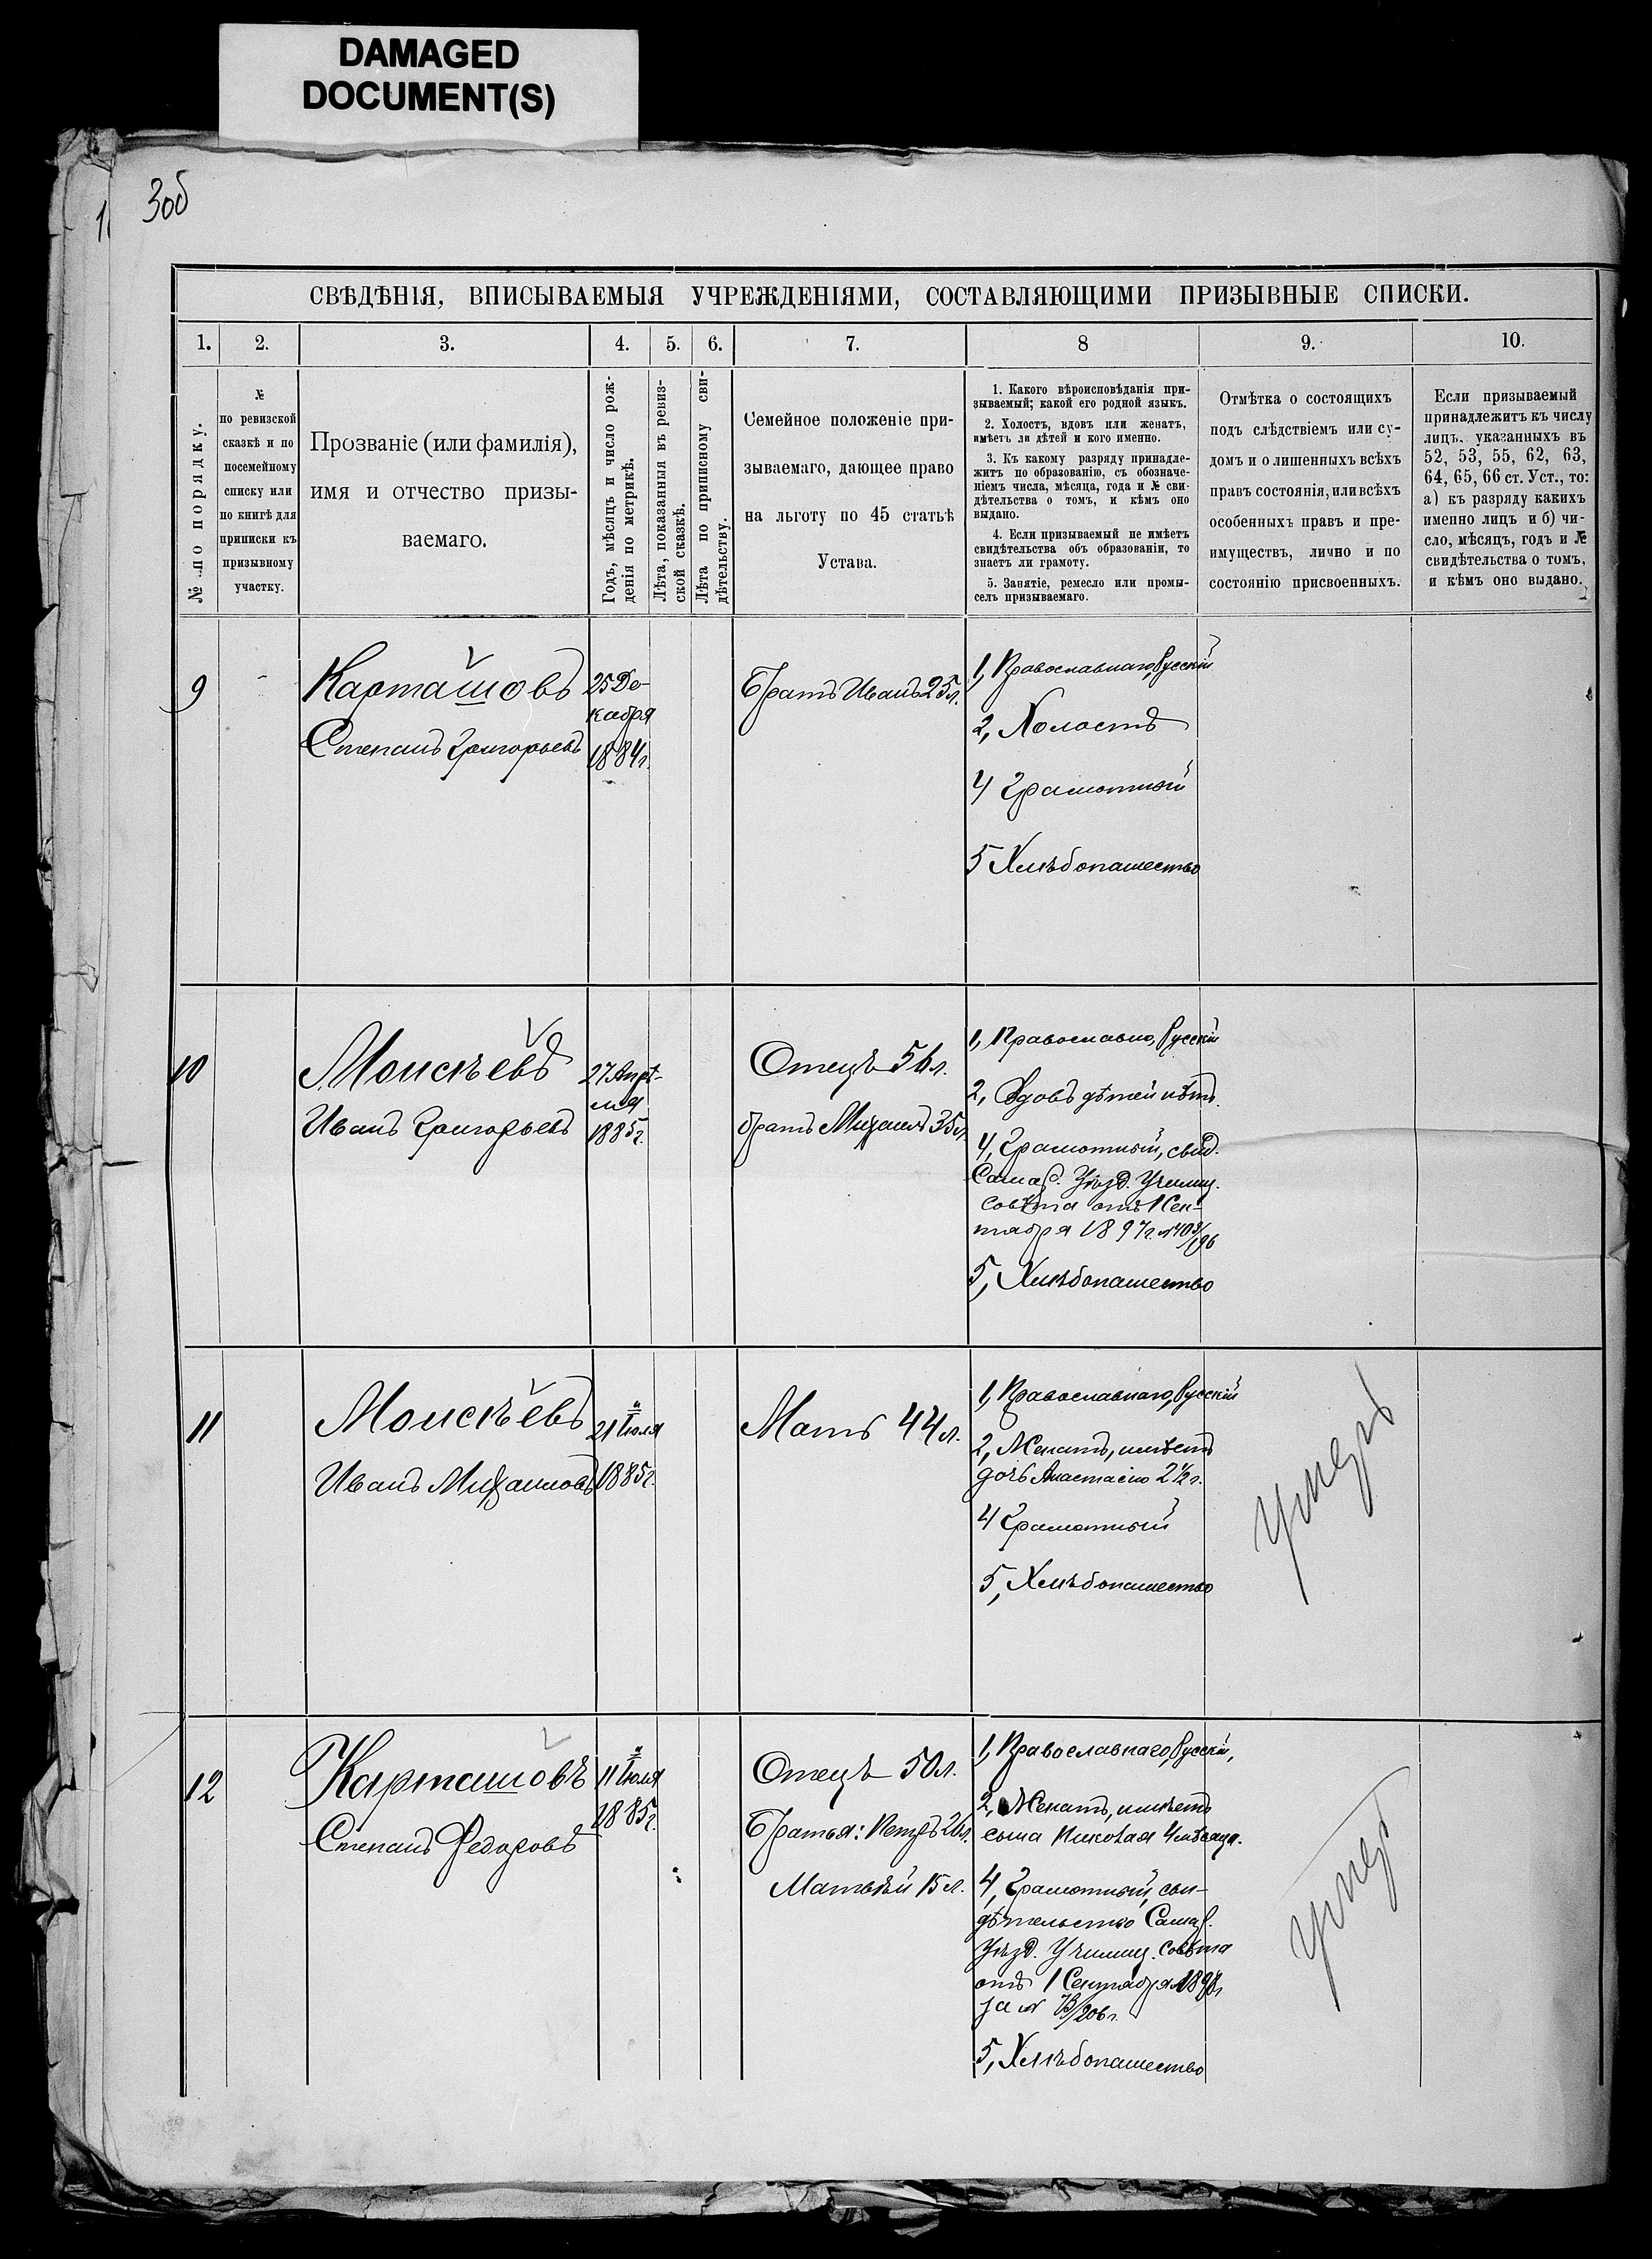 DAMAGED
DOCUMENT(S)
3об
СВѢДѢНІЯ, ВПИСЫВАЕМЫЯ УЧРЕЖДЕНІЯМИ, СОСТАВЛЯЮЩИМИ ПРИЗЫВНЫЕ СПИСКИ.
1. 2. 3. 4. 5. 6. 7. 8 9. 10.
№ по порядку.
№
по ревизской
сказкѣ и по
посемейному
списку или
по книгѣ для
приписки къ
призывному
участку.
Прозваніе (или фамилія),
имя и отчество призы-
ваемаго.
Годъ, мѣсяцъ и число рож-
денія по метрикѣ.
Лѣта, показанныя въ ревиз-
ской сказкѣ.
Лѣта по приписному сви-
дѣтельству.
Семейное положеніе при-
зываемаго, дающее право
на льготу по 45 статьѣ
Устава.
1. Какого вѣроисповѣданія при-
зываемый; какой его родной языкъ.
2. Холостъ, вдовъ или женатъ,
имѣетъ ли дѣтей и кого именно.
3. Къ какому разряду принадле-
житъ по образованію, съ обозначе-
ніемъ числа, мѣсяца, года и № сви-
дѣтельства о томъ, и кѣмъ оно
выдано.
4. Если призываемый не имѣетъ
свидѣтельства объ образованіи, то
знаетъ ли грамоту.
5. Занятіе, ремесло или промы-
селъ призываемаго.
Отмѣтка о состоящихъ
подъ слѣдствіемъ или су-
домъ и о лишенныхъ всѣхъ
правъ состоянія, или всѣхъ
особенныхъ правъ и пре-
имуществъ, лично и по
состоянію присвоенныхъ.
Если призываемый
принадлежитъ къ числу
лицъ. указанныхъ въ
52, 53, 55, 62, 63,
64, 65, 66 ст. Уст., то:
а) къ разряду какихъ
именно лицъ и б) чи-
сло, мѣсяцъ, годъ и №
свидѣтельства о томъ,
и кѣмъ оно выдано.
9
Карташовъ
Степанъ Григорьевъ
25 Де-
кабря
1884г.
Братъ Иванъ 25л.
1, Православнаго, Русскій
2, Холостъ
4 Грамотный
5 Хлѣбопашество
10
Моисѣевъ
Иванъ Григорьевъ
27 Апрѣ-
ля
1885г.
Отецъ 56л.
братъ Михаилъ 35л.
1, Православно, Русскій
2, Вдовъ дѣтей нѣтъ.
4, Грамотный, свид.
Самар. Уѣзд. Училищ.
совѣта отъ 1 Сен-
тября 1897г.
5, Хлѣбопашество
11
Моисѣевъ
Иванъ Михаиловъ
21 Іюля
1885г.
Мать 44л.
1, Православнаго, Русскій
2, Женатъ, имѣетъ
дочь Анастасію 2½г.
4 Грамотный
5, Хлѣбопашество
Умеръ
12
Карташовъ
Степанъ Федоровъ
11 Іюля
1885г.
Отецъ 50л.
Братья: Петръ 26л.
Матвѣй 15л.
1, Православнаго, Русскій,
2, Женатъ, имѣетъ
сына Николая 4 мѣсяца.
4, Грамотный, сви-
дѣтельство Самар.
Уѣзд. Училищ. Совѣта
отъ 1 Сентября
за №
5, Хлѣбопашество
Умеръ